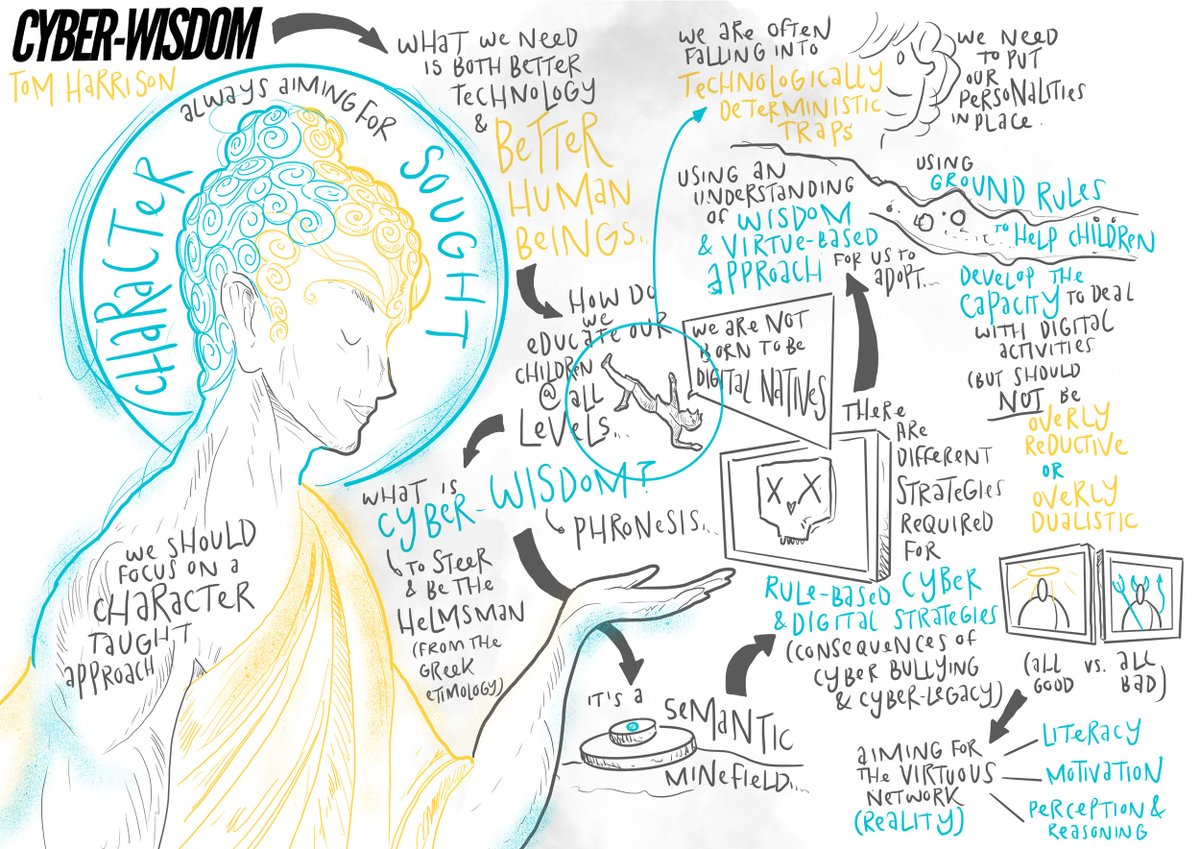 CYBER-WISDOM
TOM HARRISON
ALWAYS AIMING FOR
CHARACTER
SOUGHT
WE SHOULD
FOCUS ON A
CHARACTER
TAUGHT
APPROACH
WHAT WE NEED
IS BOTH BETTER
TECHNOLOGY
&
BETTER
HUMAN
BEINGS..
HOW DO
WE
EDUCATE OUR
CHILDREN
@ ALL
LEVELS...
WHAT IS
CYBER-WISDOM?
PHRONESIS...
TO STEER
& BE THE
HELMSMAN
(FROM THE
GREEK
ETIMOLOGY)
IT'S A
SEMANTIC
MINEFIELD....
RULE-BASED CYBER
& DIGITAL STRATEGIES
(CONSEQUENCES OF
CYBER BULLYING
& CYBER-LEGACY)
THERE
ARE
DIFFERENT
STRATEGIES
REQUIRED
FOR
WE ARE NOT
BORN TO BE
DIGITAL NATIVES
WE ARE OFTEN
FALLING INTO
TECHNOLOGICALLY
DETERMINISTIC
TRAPS
WE NEED
TO PUT
OUR
PERSONALITIES
IN PLACE.
USING AN
UNDERSTANDING
OF WISDOM
& VIRTUE-BASED
APPROACH FOR US TO
ADOPT...
USING
GROUND RULES
TO HELP CHILDREN
DEVELOP THE
CAPACITY TO DEAL
WITH DIGITAL
ACTIVITIES
(BUT SHOULD
NOT BE
OVERLY
REDUCTIVE
OR
OVERLY
DUALISTIC
(ALL VS. ALL
GOOD BAD)
AIMING FOR
THE VIRTUOUS
NETWORK
(REALITY)
LITERACY
MOTIVATION
PERCEPTION &
REASONING